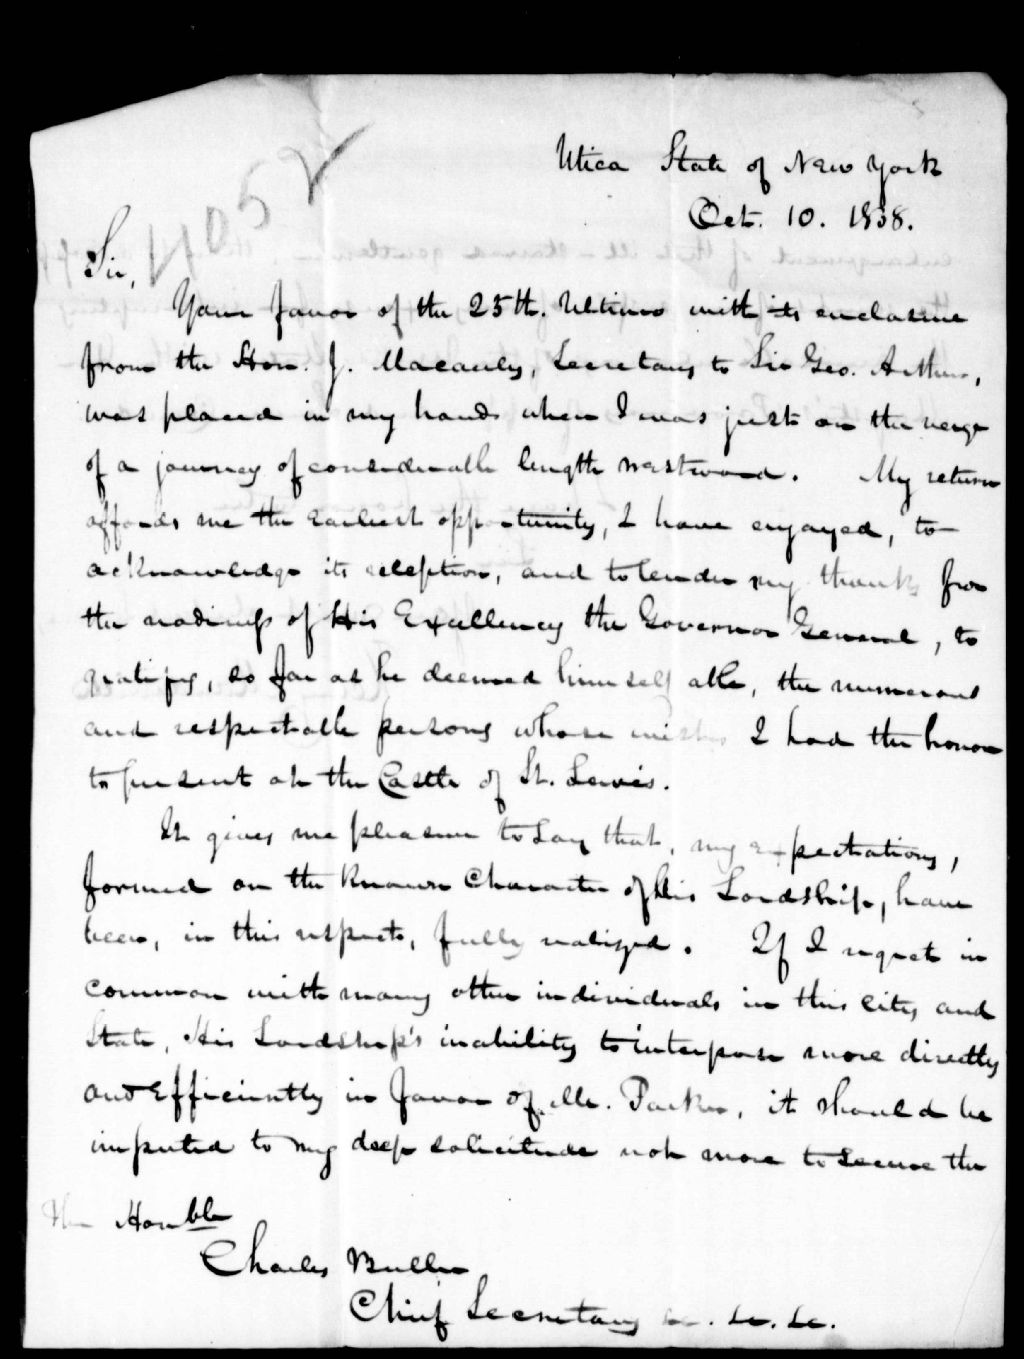 Utica State of New York
Oct. 10. 1838.
4052
Sir,
Your favor of the 25th. Ultimo with its enclosure
from the Hon. J. Macauly, Secretary to Sir Geo. Arthur,
was placed in my hands when I was just on the verge
of a journey of considerable length westward. My return
affords me the earliest opportunity, I have enjoyed, to
acknowledge its reception, and to tender my thanks for
the readiness of His Excellency the Governor General, to
gratify, so far as he deemed himself able, the numerous
and respectable persons whose wishes I had the honor
to present at the Castle of St. Lewis.
It gives me pleasure to say that, my expectations,
formed on the known Character of His Lordship, have
been, in this respect, fully realized. If I regret in
common with many other individuals in this city and
State, His Lordship's inability to interpose more directly
and efficiently in favor of Mr. Parker, it should be
imputed to my deep solicitude not more to secure the
The Honble
Charles Buller
Chief Secretary &c. &c. &c.